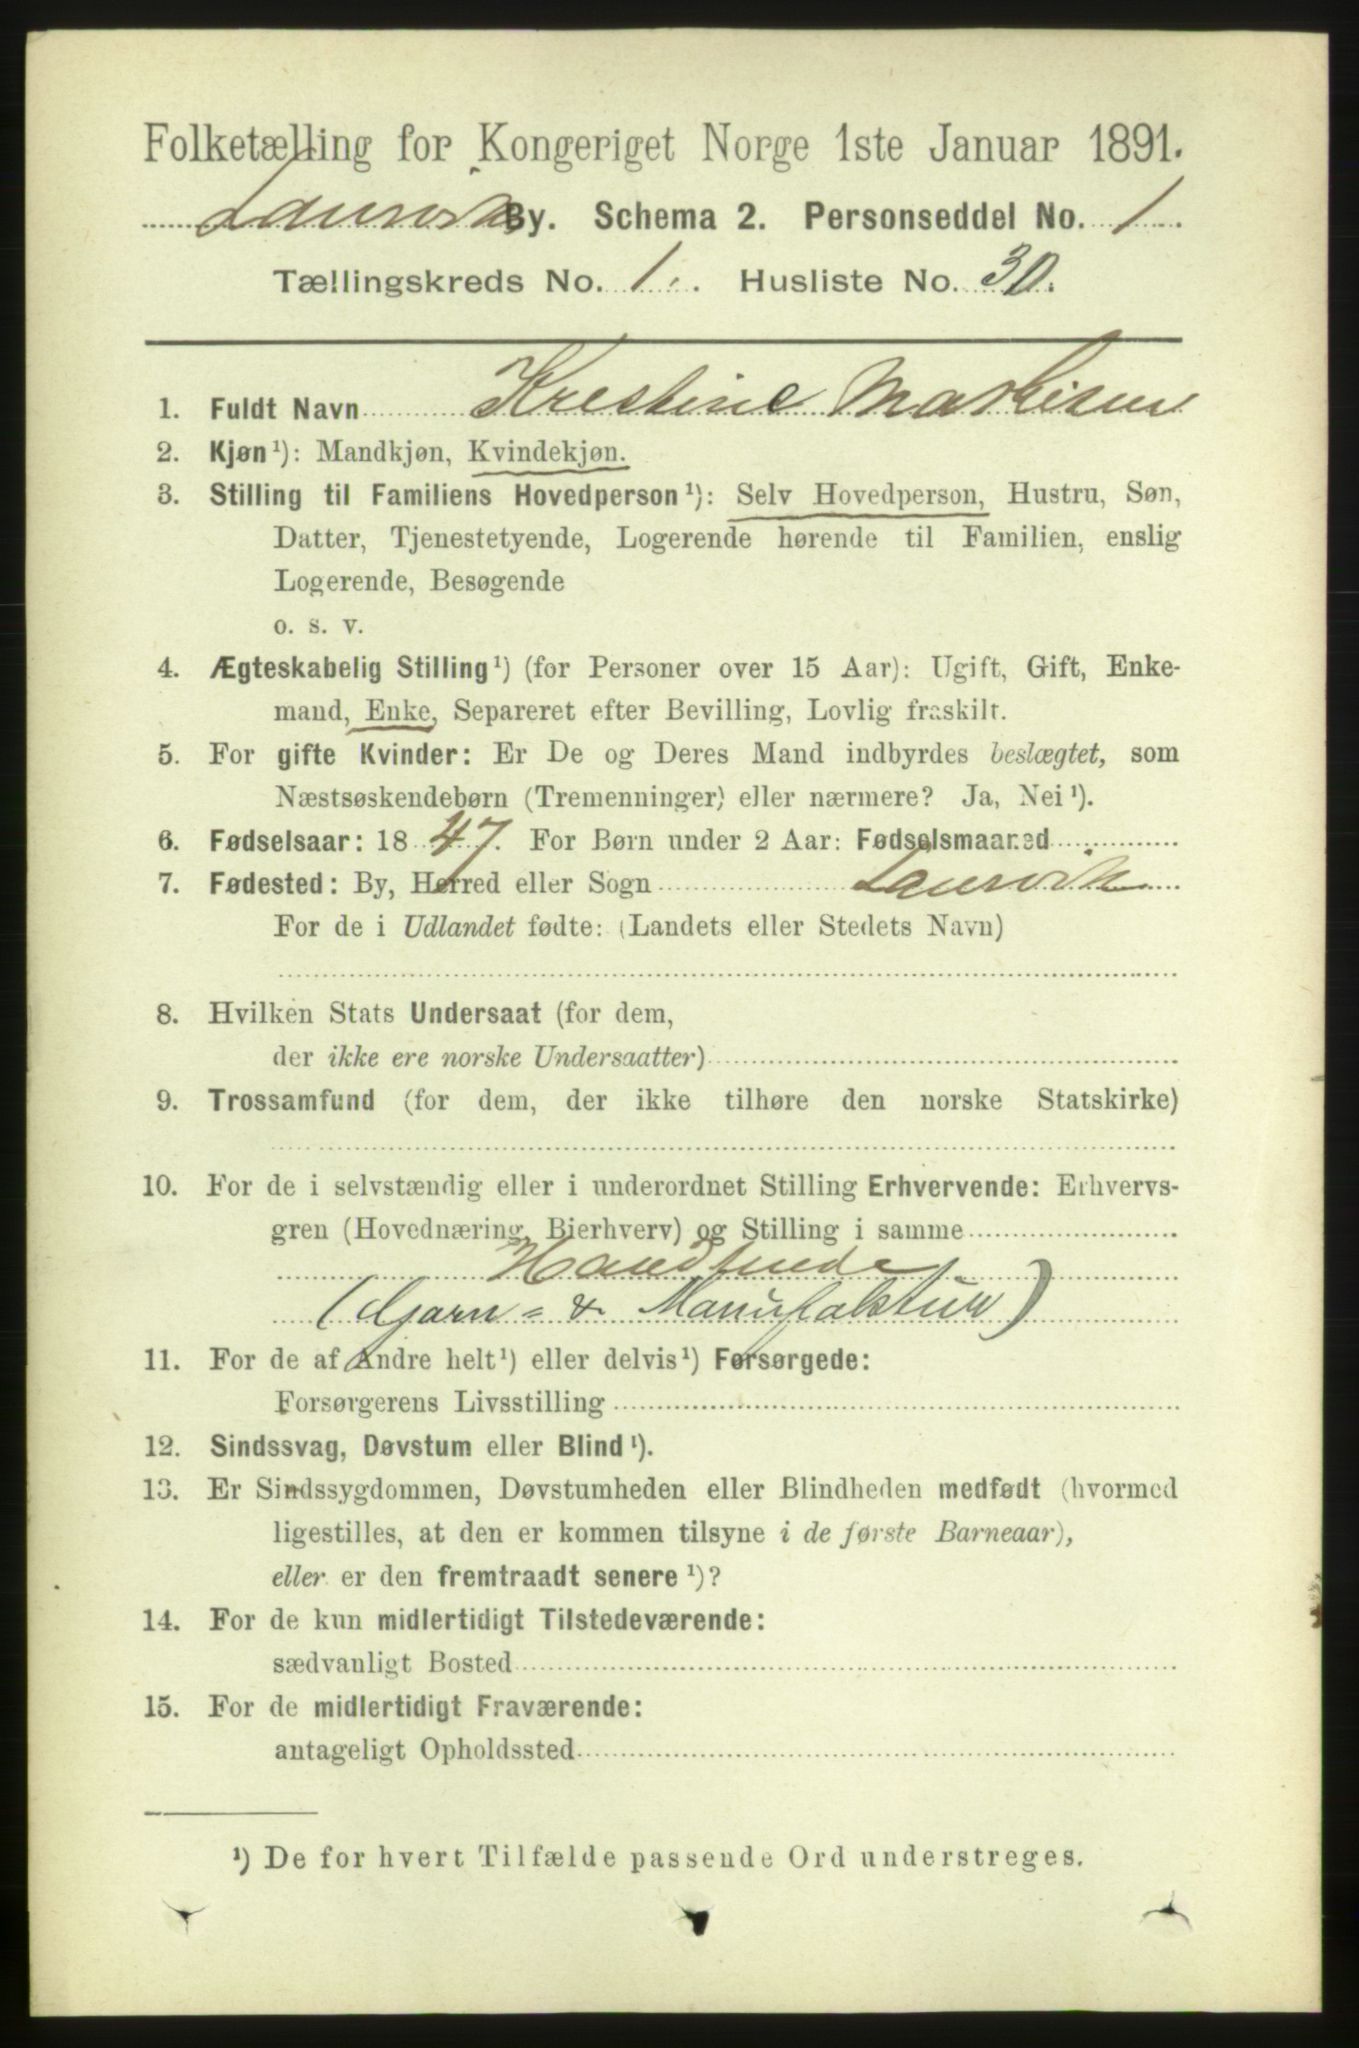 Folketælling for Kongeriget Norge 1ste Januar 1891.
Laurvik By. Schema 2. Personseddel No. 1
Tællingskreds No. 1. Husliste No. 30.
1. Fuldt Navn Krestine Mathisen
2. Kjøn¹): Mandkjøn, Kvindekjøn.
3. Stilling til Familiens Hovedperson¹): Selv Hovedperson, Hustru, Søn,
Datter, Tjenestetyende, Logerende hørende til Familien, enslig
Logerende, Besøgende
o. s. v.
4. Ægteskabelig Stilling¹) (for Personer over 15 Aar): Ugift, Gift, Enke-
mand, Enke, Separeret efter Bevilling, Lovlig fraskilt.
5. For gifte Kvinder: Er De og Deres Mand indbyrdes beslægtet, som
Næstsøskendebørn (Tremenninger) eller nærmere? Ja, Nei¹).
6. Fødselsaar: 1847. For Børn under 2 Aar: Fødselsmaaned
7. Fødested: By, Herred eller Sogn Laurvik
For de i Udlandet fødte: (Landets eller Stedets Navn)
8. Hvilken Stats Undersaat (for dem,
der ikke ere norske Undersaatter)
9. Trossamfund (for dem, der ikke tilhøre den norske Statskirke)
10. For de i selvstændig eller i underordnet Stilling Erhvervende: Erhvervs-
gren (Hovednæring, Bierhverv) og Stilling i samme
Handlende
(Garn- & Manufaktur)
11. For de af Andre helt¹) eller delvis¹) Forsørgede:
Forsørgerens Livsstilling
12. Sindssvag, Døvstum eller Blind¹).
13. Er Sindssygdommen, Døvstumheden eller Blindheden medfødt (hvormed
ligestilles, at den er kommen tilsyne i de første Barneaar),
eller er den fremtraadt senere¹)?
14. For de kun midlertidigt Tilstedeværende:
sædvanligt Bosted
15. For de midlertidigt Fraværende:
antageligt Opholdssted
¹) De for hvert Tilfælde passende Ord understreges.